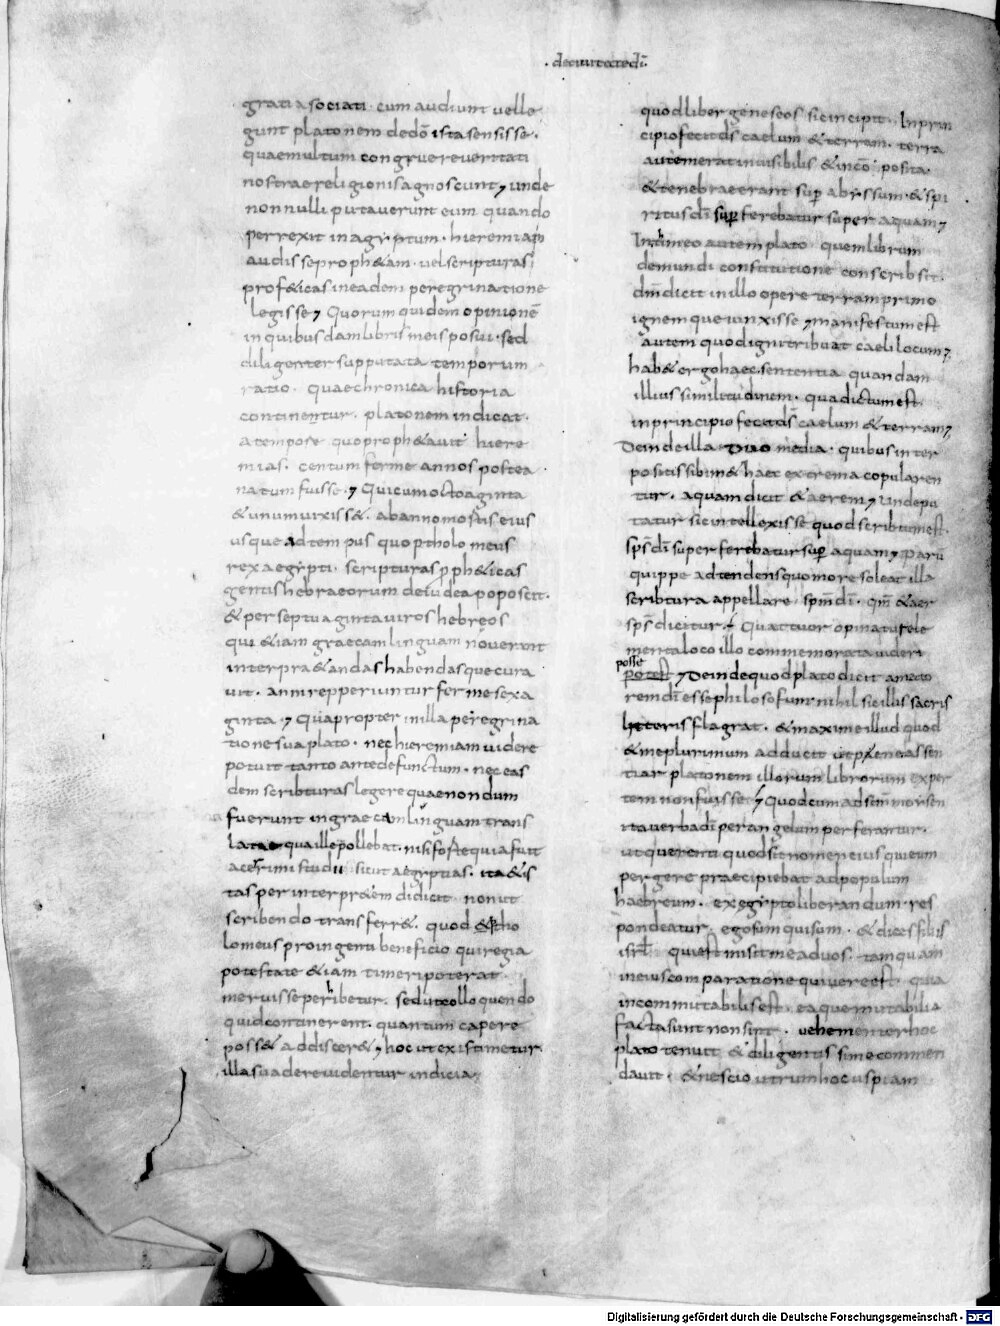 · deciuitatedi ·
gratia sociati · cum audiunt uelle
gunt platonem dedō ista sensisse ·
quae multum congruere ueritati
nostrae religionis agnoscunt ⁊ unde
nonnulli putauerunt eum quando
perrexit in aegyptum · hieremiam
audisse proph&am · uel scripturas
prof&icas in eadem peregrinatione
legisse ⁊ Quorum quidem opinionē
in quibusdam libris meis posui · sed
diligenter supputata temporum
ratio · quae chronica historia
continentur · platonem indicat ·
a tempore quo proph&auit hiere
mias · centum ferme annos postea
natum fuisse · ⁊ Qui cum octoaginta
& unum uixiss& · ab anno mortis eius
usque ad tempus quo ptholomeus
rex aegypti · scripturas proph&icas
gentis hebraeorum de iudea poposcit ·
& per septuaginta uiros hebreos
qui &iam graecam linguam nouerant
interpr&andas habendasque cura
uit · anni repperiuntur ferme sexa
ginta · ⁊ Quapropter in illa peregrina
tione sua plato · nec hieremiam uidere
potuit tanto ante defunctum · nec eas
dem scribturas legere quae nondum
fuerunt in graecam linguam trans
latae qua ille pollebat · nisi forte quia fuit
acerrimi studii sicut aegyptias · ita & is
tas per interpr&em didicit non ut
scribendo transferr& · quod ptho
lomeus pro ingenti beneficio qui regia
potestate &iam timeri poterat
meruisse perhibetur · sed ut colloquendo
quid continerent · quantum capere
poss& addiscer& ⁊ hoc ut existimetur
illa suadere uidentur indicia ⁊
quod liber geneseos sic incipit · In prin
cipio fecit ds caelum & terram · terra
autem erat inuisibilis & incōposita ·
& tenebrae erant sup abyssum · & spi
ritus di superferebatur super aquam ⁊
In timeo autem plato quem librum
de mundi constitutione conscribsit ·
dm dicit in illo opere terram primo
ignemque iunxisse ⁊ manifestum est
autem quod igni tribuat caeli locum ⁊
hab& ergo haec sententia quandam
illius similitudinem · qua dictum est ·
in principio fecit ds caelum & terram ⁊
Deinde illa duo media · quibus inter
positis sibim& haec extrema copularen
tur · aquam dicit & aerem ⁊ unde pu
tatur sic intellexisse quod scribtum est ·
sps di superferebatur sup aquam ⁊ Paru
quippe adtendens quo more soleat illa
scribtura appellare · spm di · qm & aer
sps dicitur · Quattuor opinatus ele
menta loco illo commemorata uideri
posse
potest ⁊ Deinde quod plato dicit amato
rem di esse philosofum · nihil sic illis sacris
litteris flagrat · & maxime illud quod
& me plurimum adducit ut pene assen
tiar platonem illorum librorum exper
tem non fuisse · Quod cum ad scm moysen
ita uerba di per angelum perferantur ·
ut querenti quod sit nomen eius qui eum
pergere praecipiebat ad populum
haebreum · ex egypto liberandum · res
pondeatur · ego sum qui sum · & dices filiis
isrl · qui est misit me ad uos · tamquam
in eius comparatione qui uere est · quia
incommutabilis est · ea quae mutabilia
facta sunt non sint · uehementer hoc
plato tenuit & diligentissime commen
dauit · & nescio utrum hoc uspiam
Digitalisierung gefördert durch die Deutsche Forschungsgemeinschaft - DFG